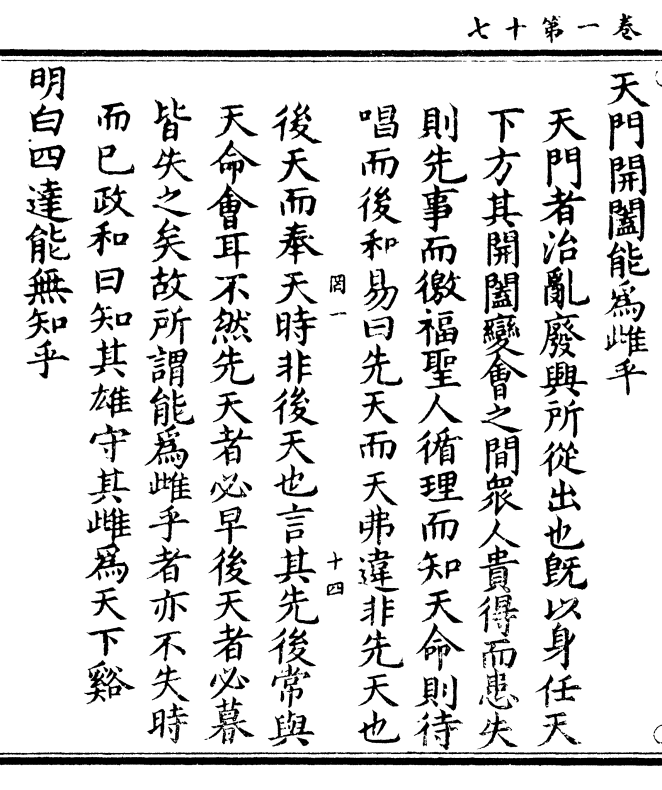 卷一第十七
天門開闔能爲雌乎
天門者治亂廢興所從出也旣以身任天
下方其開闔變會之間衆人貴得而患失
則先事而徼福聖人循理而知天命則待
唱而後和易曰先天而天弗違非先天也
罔一
十四
後天而奉天時非後天也言其先後常與
天命會耳不然先天者必早後天者必暮
皆失之矣故所謂能爲雌乎者亦不失時
而已政和曰知其雄守其雌爲天下谿
明白四達能無知乎